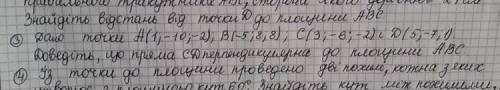 Знайдіть відстань від точки D до площини ABC
③ Дано точки A(1,-10,-2), B(-5;8;8), C(3;-8;-2) і D(5;-7,1).
Доведіть, що пряма CD перпендикулярна до площини ABC
④ Із точки до площини проведено дві похилі, кожна з яких
площиною кут 60°. Знайдіть кут між похилими,